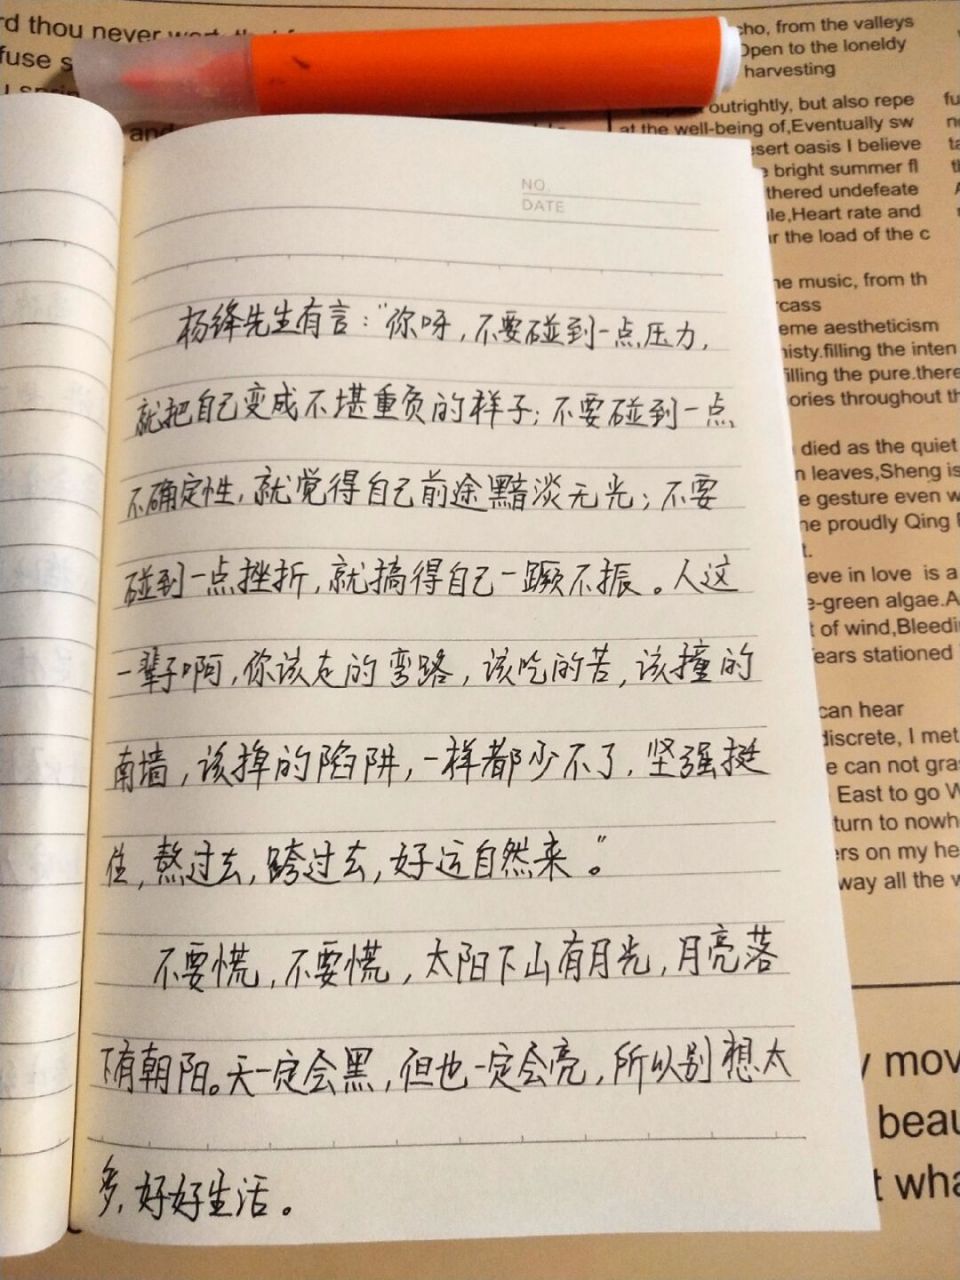 rd thou never wert, that f
fuse s
u sprin
and
cho, from the valleys
Open to the loneldy
harvesting
outrightly, but also repe
at the well-being of,Eventually sw
esert oasis I believe
e bright summer fl
thered undefeate
le,Heart rate and
r the load of the c
ne music, from th
rcass
eme aestheticism
nisty.filling the inten
illing the pure.there
ories throughout th
died as the quiet
n leaves,Sheng is
e gesture even w
he proudly Qing
t.
eve in love is a
e-green algae.A
t of wind,Bleedi
ears stationed
can hear
discrete, I met
e can not gras
East to go W
turn to nowh
ers on my he
way all the w
y mov
beau
t wha
NO.
DATE
杨绛先生有言：“你呀，不要碰到一点压力，
就把自己变成不堪重负的样子；不要碰到一点
不确定性，就觉得自己前途黯淡无光；不要
碰到一点挫折，就搞得自己一蹶不振。人这
一辈子啊，你该走的弯路，该吃的苦，该撞的
南墙，该掉的陷阱，一样都少不了，坚强挺
住，熬过去，跨过去，好运自然来。”
不要慌，不要慌，太阳下山有月光，月亮落
下有朝阳。天一定会黑，但也一定会亮，所以别想太
多，好好生活。